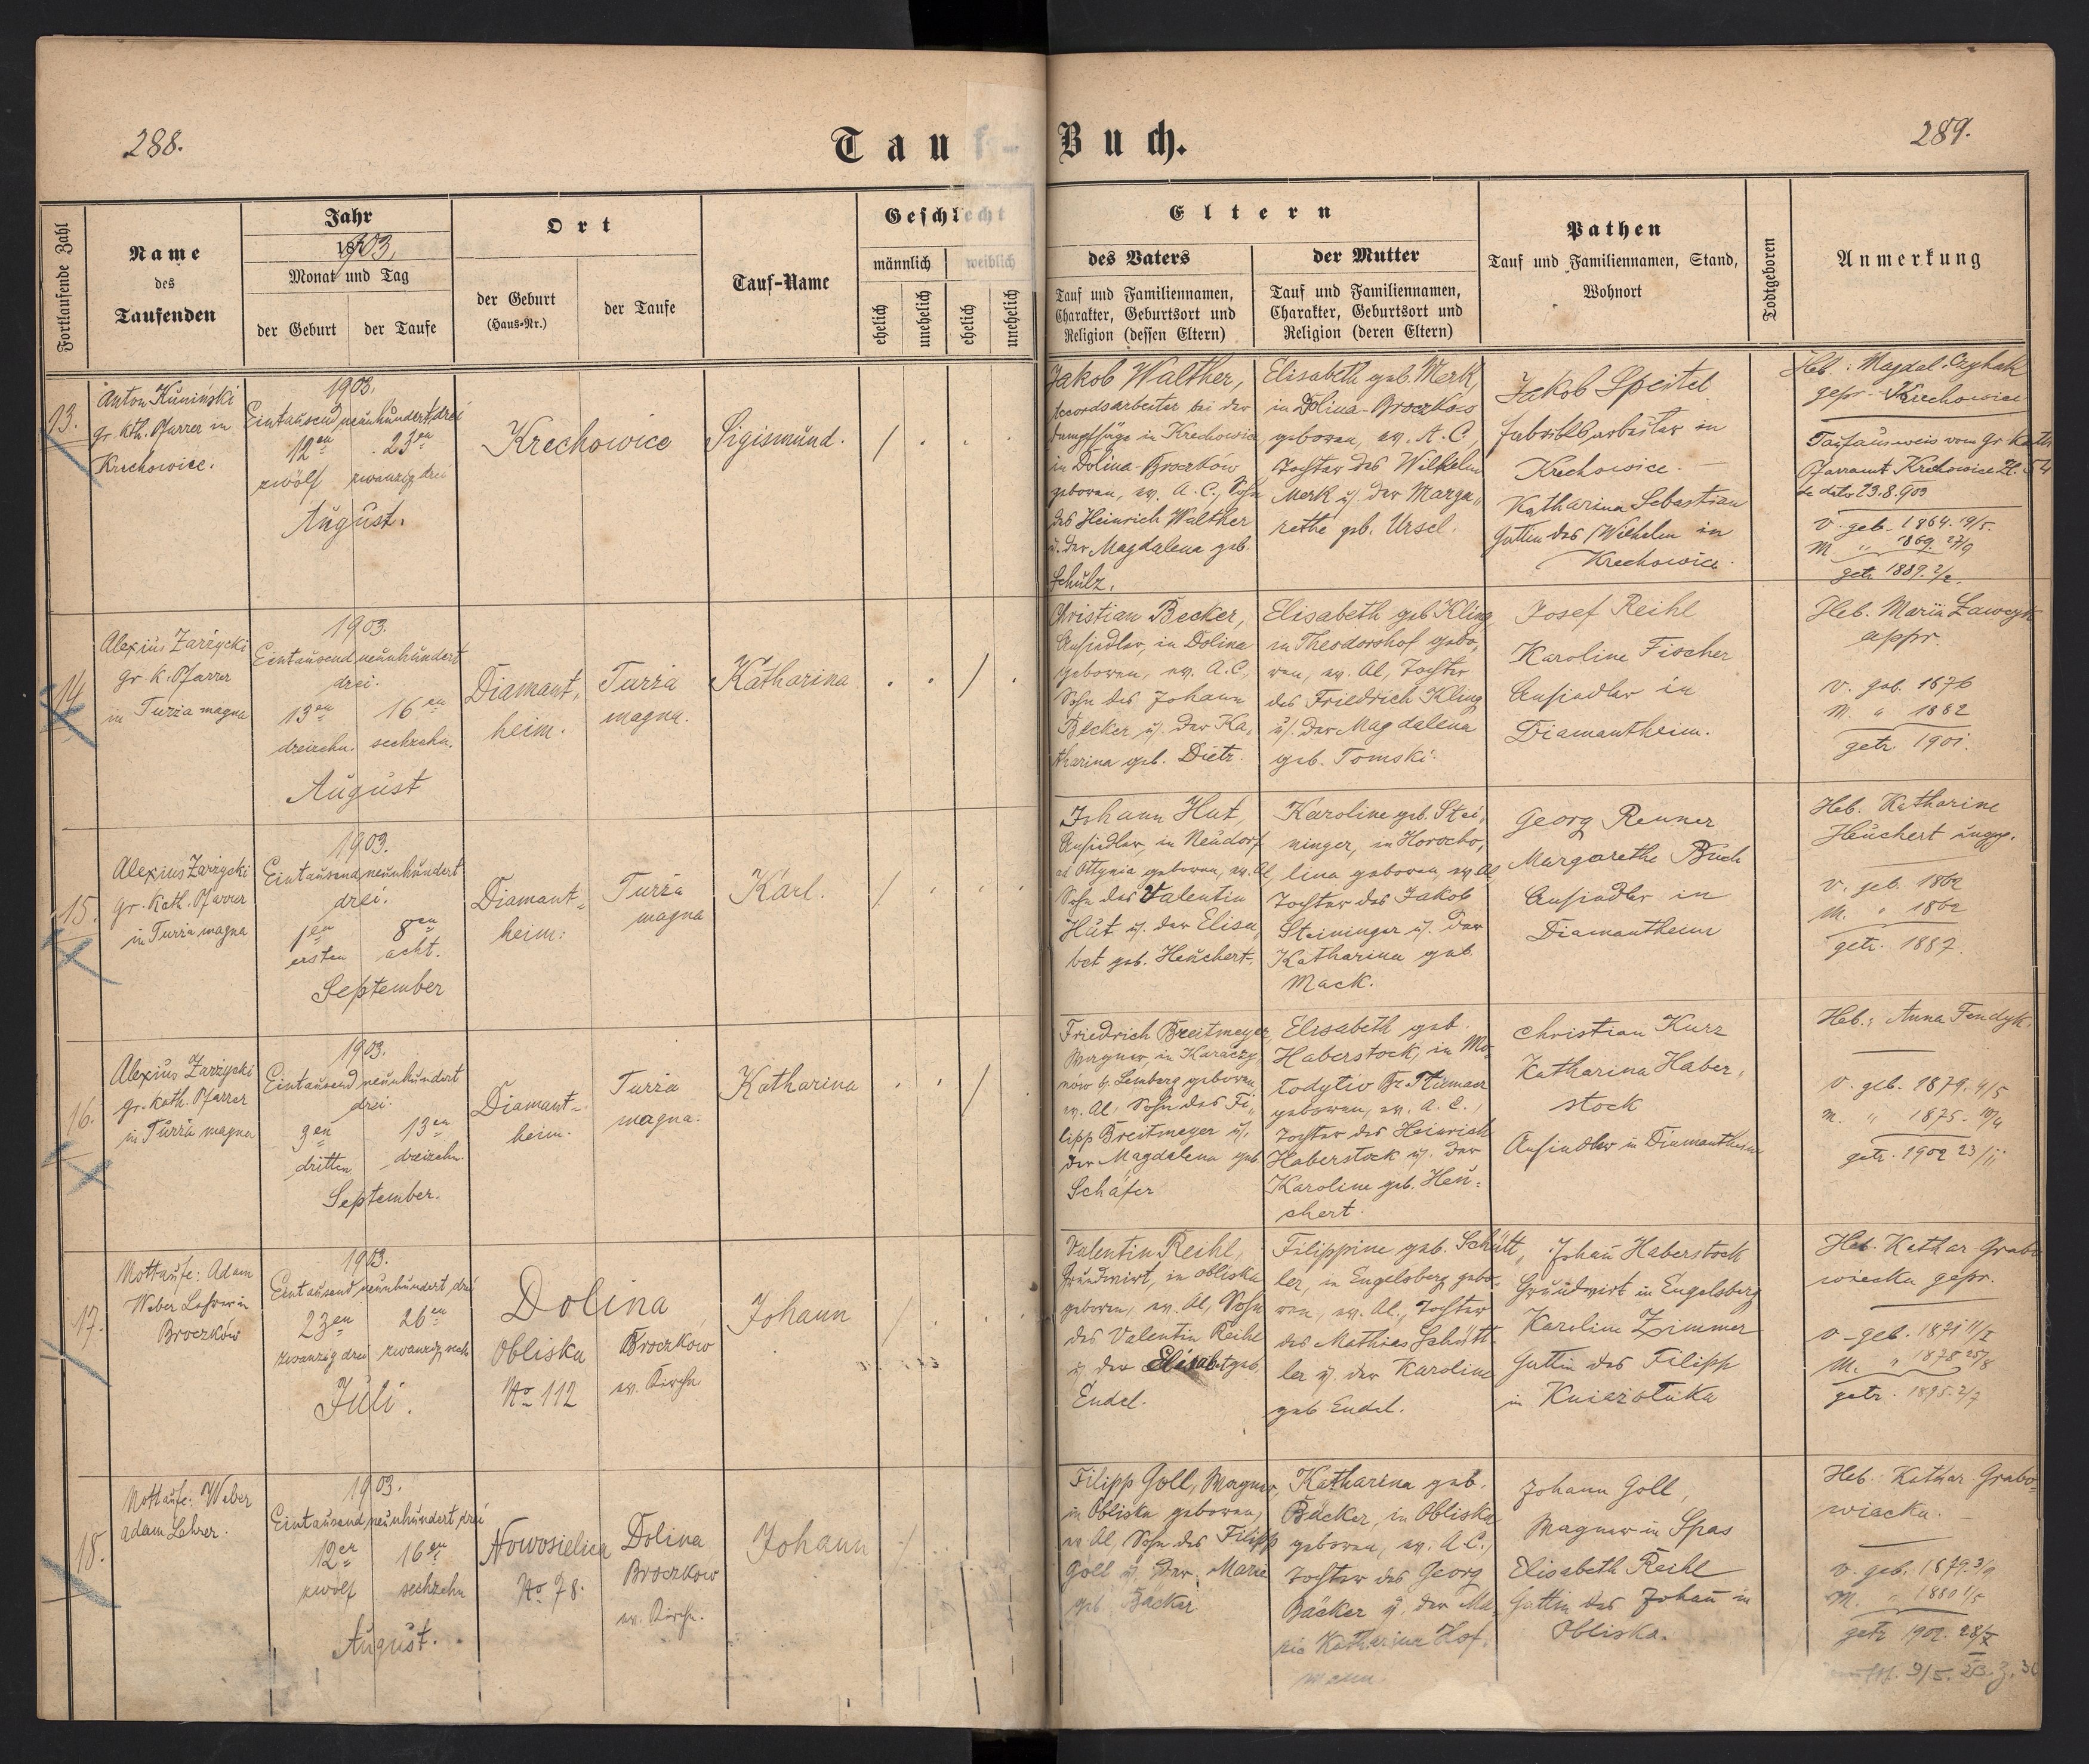 288.
Tauf-Buch.
289.
Fortlaufende Zahl
Name
des
Taufenden
Jahr
1903.
Monat und Tag
der Geburt
der Taufe
Ort
der Geburt
(Haus-Nr.)
der Taufe
Tauf-Name
Geschlecht
männlich
weiblich
ehelich
unehelich
ehelich
unehelich
Eltern
des Vaters
Tauf und Familiennamen,
Charakter, Geburtsort und
Religion (dessen Eltern)
der Mutter
Tauf und Familiennamen,
Charakter, Geburtsort und
Religion (deren Eltern)
Pathen
Tauf und Familiennamen, Stand,
Wohnort
Todtgeboren
Anmerkung
13.
Anton Kuninski
gr. kath. Pfarrer in
Krechowice.
1903.
Eintausendneunhundertdrei
12en 23en
zwölf zwanzigdrei
August.
Krechowice
Sigismund.
/ . . .
Jakob Walther,
Accordsarbeiter bei der
Dampfsäge in Krechowice,
in Dolina-Broczków
geboren, ev. A. C., Sohn
des Heinrich Walther
u. der Magdalena geb.
Schulz.
Elisabeth geb. Merk,
in Dolina-Broczków
geboren, ev. A. C.
Tochter des Wilhelm
Merk u. der Marga„
rethe geb. Ursel.
Jakob Speitel
Fabriksarbeiter in
Krechowice. –
Katharina Sebastian
Gattin des Wilhelm in
Krechowice.
Heb.: Magdal. Czyhak
gepr. - Krechowice
Taufausweis vom gr. kath.
Pfarramt Krechowice Zl. 54
de dato 23.8.903
V. geb. 1864. 19/5.
M " 1869. 27/9
getr. 1889. 2/2.
14
Alexius Zarzycki
gr. k. Pfarrer
in Turza magna
1903.
Eintausendneunhundert
drei.
13en 16en
dreizehn. sechzehn.
August
Diamant„
heim.
Turza
magna.
Katharina
. . / .
Christian Becker,
Ansiedler, in Dolina
geboren, ev. A. C.,
Sohn des Johann
Becker u. der Ka„
tharina geb. Dietz.
Elisabeth geb. Kling
in Theodorshof gebo„
ren, ev. Al, Tochter
des Friedrich Kling
u. der Magdalena
geb. Tomski.
Josef Reihl
Karoline Fischer
Ansiedler in
Diamantheim.
Heb. Maria Ławczyk
appr.
V. geb. 1876
M. " 1882
getr. 1901.
15.
Alexius Zarzycki
gr. Kath. Pfarrer
in Turza magna
1903.
Eintausendneunhundert
drei.
1en 8en
ersten acht.
September
Diamant=
heim.
Turza
magna
Karl.
/ . . .
Johann Hut,
Ansiedler, in Neudorf
ad Ottynia geboren, ev. Al,
Sohn des Valentin
Hut u. der Elisa„
bet geb. Heuchert.
Karoline geb. Stei„
ninger, in Horocho„
lina geboren, ev. Al,
Tochter des Jakob
Steininger u. der
Katharina geb.
Mack.
Georg Renner
Margarethe Buch
Ansiedler in
Diamantheim
Heb. Katharine
Heuchert ungpr.
V. geb. 1862
M. " 1862
getr. 1887.
16.
Alexius Zarzycki
gr. Kath. Pfarrer
in Turza magna
1903.
Eintausendneunhundert
drei.
3en 13en
dritten dreizehn.
September.
Diamant=
heim.
Turza
magna.
Katharina
. . / .
Friedrich Breitmeyer,
Wagner, in Karaczy
nów b. Lemberg geboren,
ev. Al, Sohn des Fi„
lipp Breitmeyer u.
der Magdalena geb.
Schäfer
Elisabeth geb.
Haberstock, in Mo„
geboren, ev. A. C.,
Tochter des Heinrich
Haberstock u. der
Karoline geb. Heu=
chert.
Christian Kurz
Katharina Haber„
stock
Ansiedler in Diamantheim
Heb.: Anna Fendyk.
V. geb. 1879. 4/5
M. " 1875. 10/4
getr. 1902 23/11
17.
Nottaufe: Adam
Weber Lehrer in
Broczków
1903.
Eintausendneunhundertdrei
23en 26en
zwanzigdrei zwanzigsech
Juli.
Dolina
Obliska
No 112
Broczków
ev. Kirche
Johann
/ . . .
Valentin Reihl,
Grundwirt, in Obliska
geboren, ev. Al, Sohn
des Valentin Reihl
u. der Elisabet geb.
Endel.
Filippine geb. Schütt„
ler, in Engelsberg gebo„
ren, ev. Al., Tochter
des Mathias Schütt„
ler u. der Karoline
geb. Endel.
Johan̄ Haberstock
Grundwirt in Engelsberg
Karoline Zimmer
Gattin des Filipp
in Kniaziołuka
Heb. Kathar. Grabo
wiecka gepr.
V. geb. 1871 11/I
M. " 1878 25/8
getr. 1895. 2/7
18.
Nottaufe: Weber
Adam Lehrer.
1903.
Eintausendneunhundertdrei
12en 16en
zwölf sechzehn
August.
Nowosielica
No 78.
Dolina
Broczków
ev. Kirche.
Johann
/ . . .
Filipp Goll, Wagner,
in Obliska geboren,
ev. Al, Sohn des Filipp
Goll u. der Marie
geb. Bäcker
Katharina geb.
Bäcker, in Obliska
geboren, ev. A. C.,
Tochter des Georg
Bäcker u. der Ma„
rie Katharina Hof„
mann.
Johann Goll,
Wagner in Spas
Elisabeth Reihl
Gattin des Johan̄ in
Obliska.
Heb. Kathar. Grabo=
wiecka.
V. geb. 1879. 3/9
M. " 1880 1/5
getr. 1902. 28/X